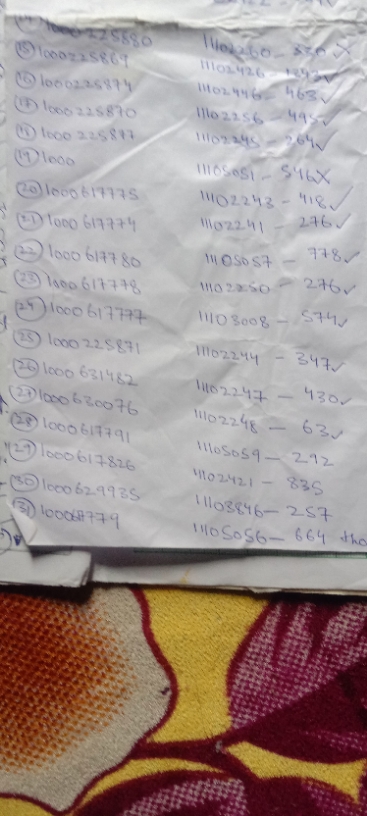 1000225880 11102260 - 330 X
(15) 1000225869 11102426 - 1242 ✓
(16) 1000225874 11102446 - 463 ✓
(17) 1000225870 11102256 - 495 ✓
(18) 1000225877 11102245 - 264 ✓
(19) 1000 11105051 - 546 X
(20) 1000617775 11102243 - 418 ✓
(21) 1000617774 11102241 - 276 ✓
(22) 1000617780 11105057 - 778 ✓
(23) 1000617778 11102250 - 276 ✓
(24) 1000617777 11103008 - 574 ✓
(25) 1000225871 11102244 - 347 ✓
(26) 1000631482 11102247 - 430 ✓
(27) 1000630076 11102248 - 63 ✓
(28) 1000617791 11105059 - 292
(29) 1000617826 11102421 - 835
(30) 1000629935 11103846 - 257
(31) 11105056 - 664